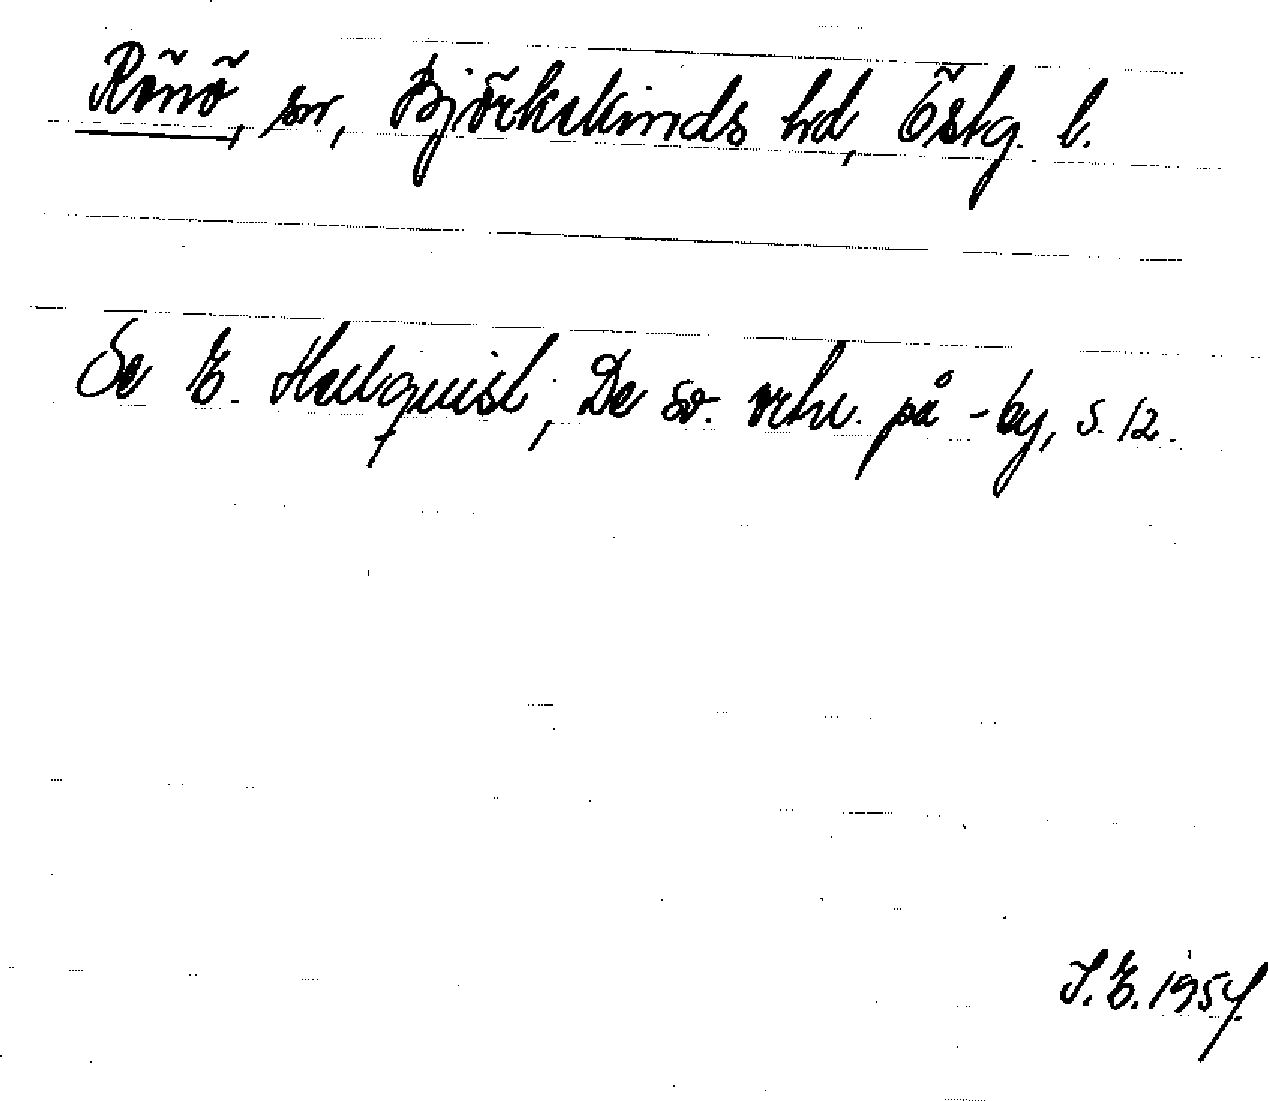 Rönö, sn, Björkekinds hd, Östg. l.
Se E. Hellquist, De sv. ortn. på -by, s. 12.
I. E. 1954.